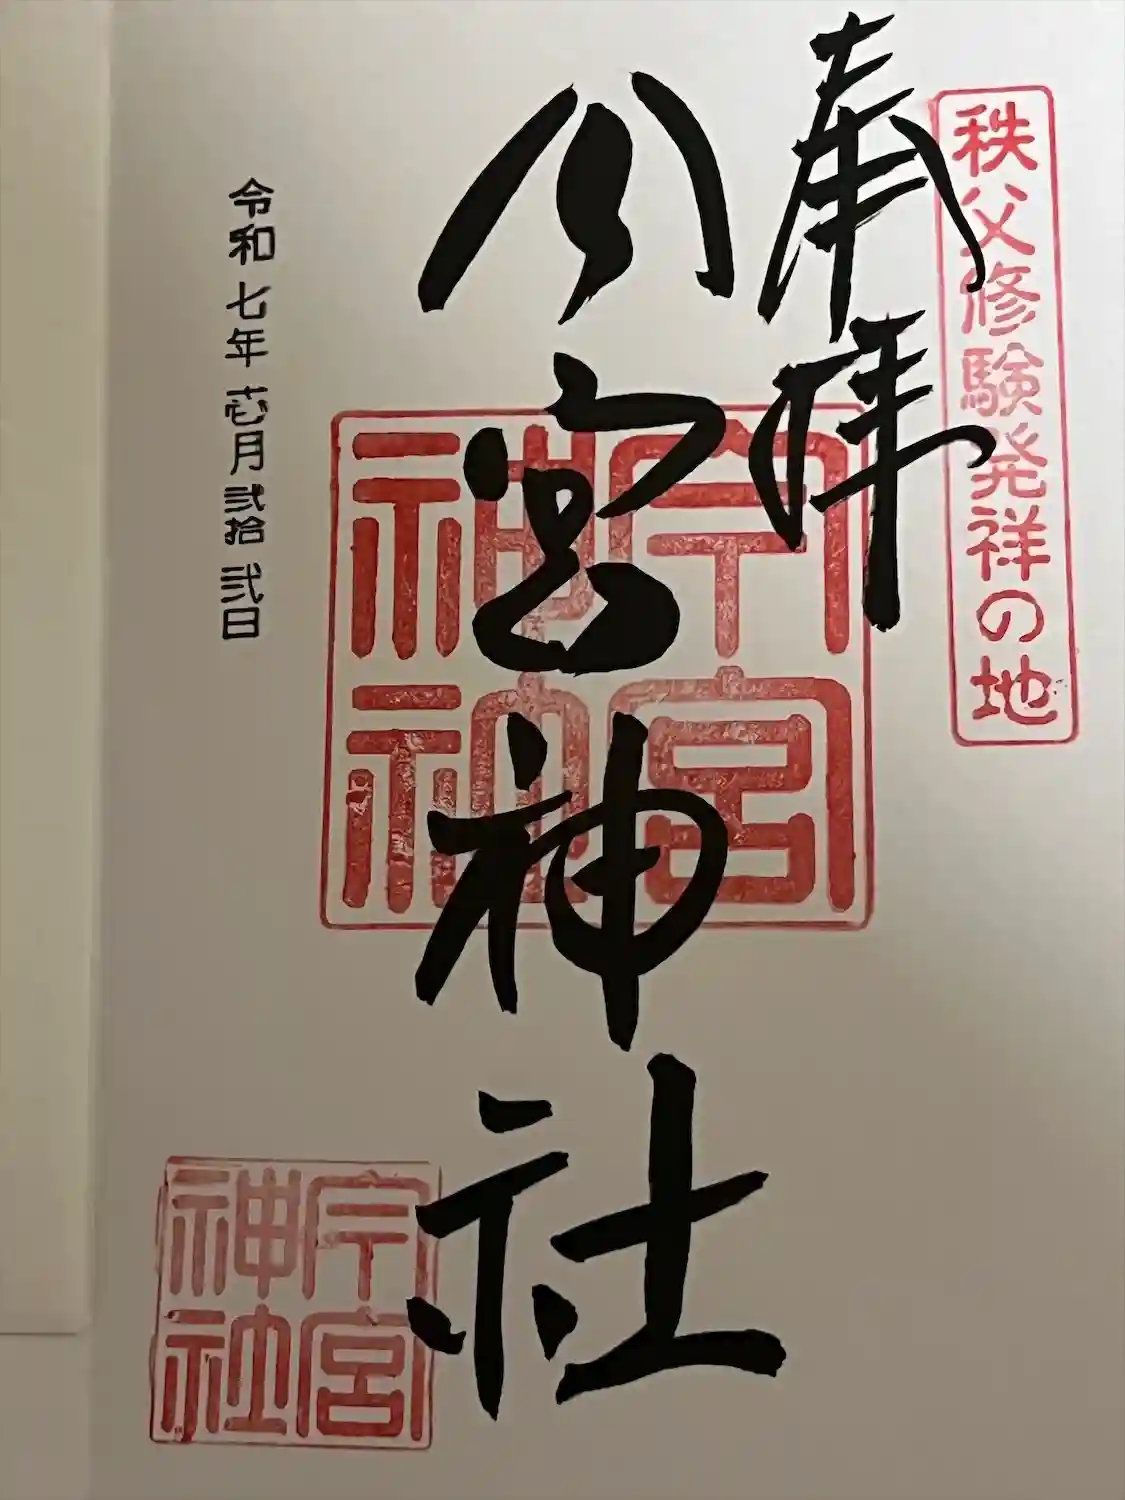 秩父修験発祥の地
奉拝
今宮神社
今宮
神社
令和七年壱月弐拾弐日
今宮
神社